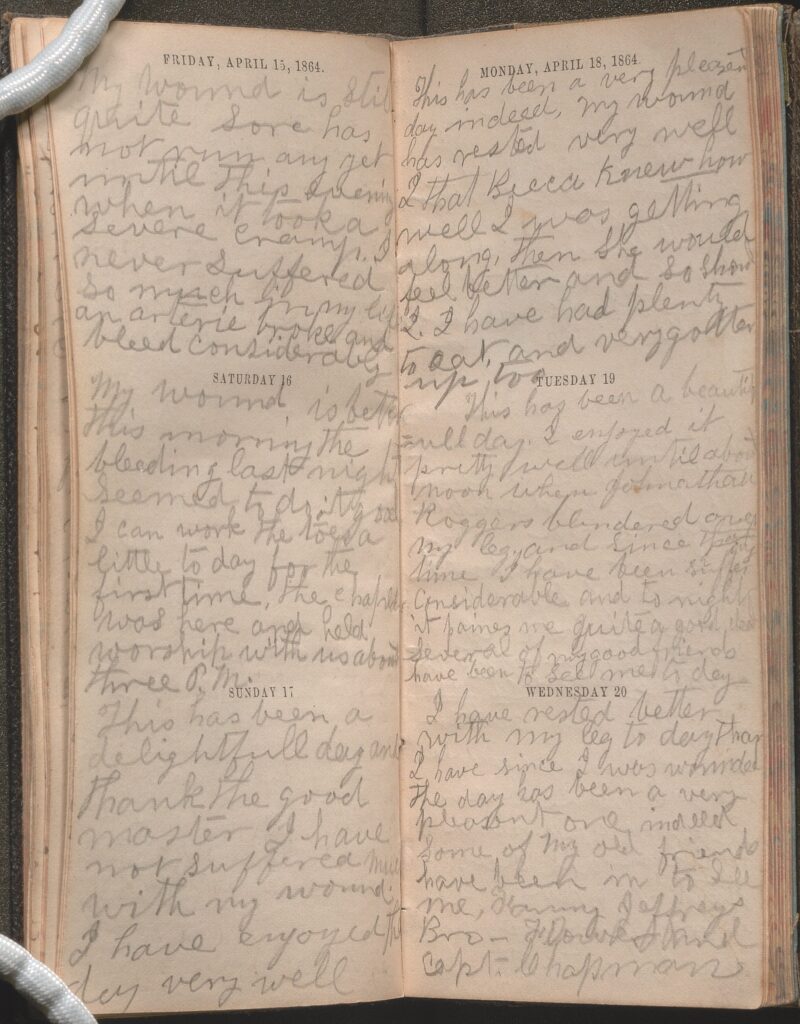 FRIDAY, APRIL 15, 1864.
My wound is still
quite sore has
not run any yet
until this evening
when it took a
severe cramp. I
never suffered
so much in my life
an arterie broke and
bleed considerably
SATURDAY 16
My wound is better
this morning the
bleeding last night
seemed to do it good
I can work the toes a
little to day for the
first time, the chaplin
was here and held
worship with us about
three P.M.
SUNDAY 17
This has been a
delightfull day and
thank the good
master I have
not suffered much
with my wound.
I have enjoyed the
day very well
MONDAY, APRIL 18, 1864.
This has been a very pleasen
day indeed, my wound
has rested very well
I that Becca knew how
well I was getting
along, then she would
feel better and so shou
I. I have had plenty
to eat, and very gotten
up, too
TUESDAY 19
This has been a beauti
=full day. I enjoyed it
pretty well until about
noon when Johnathan
Roggers blundered over
my leg, and since that
time I have been suffer
Considerable and to night
it paines me quite a good deal
several of my good friends
have been to see me to day
WEDNESDAY 20
I have rested better
with my leg to day than
I have since I was wounded
the day has been a very
pleasant one, indeed
Some of my old friends
have been in to see
me, Jeffreys
Bro- and
Capt. Chapman